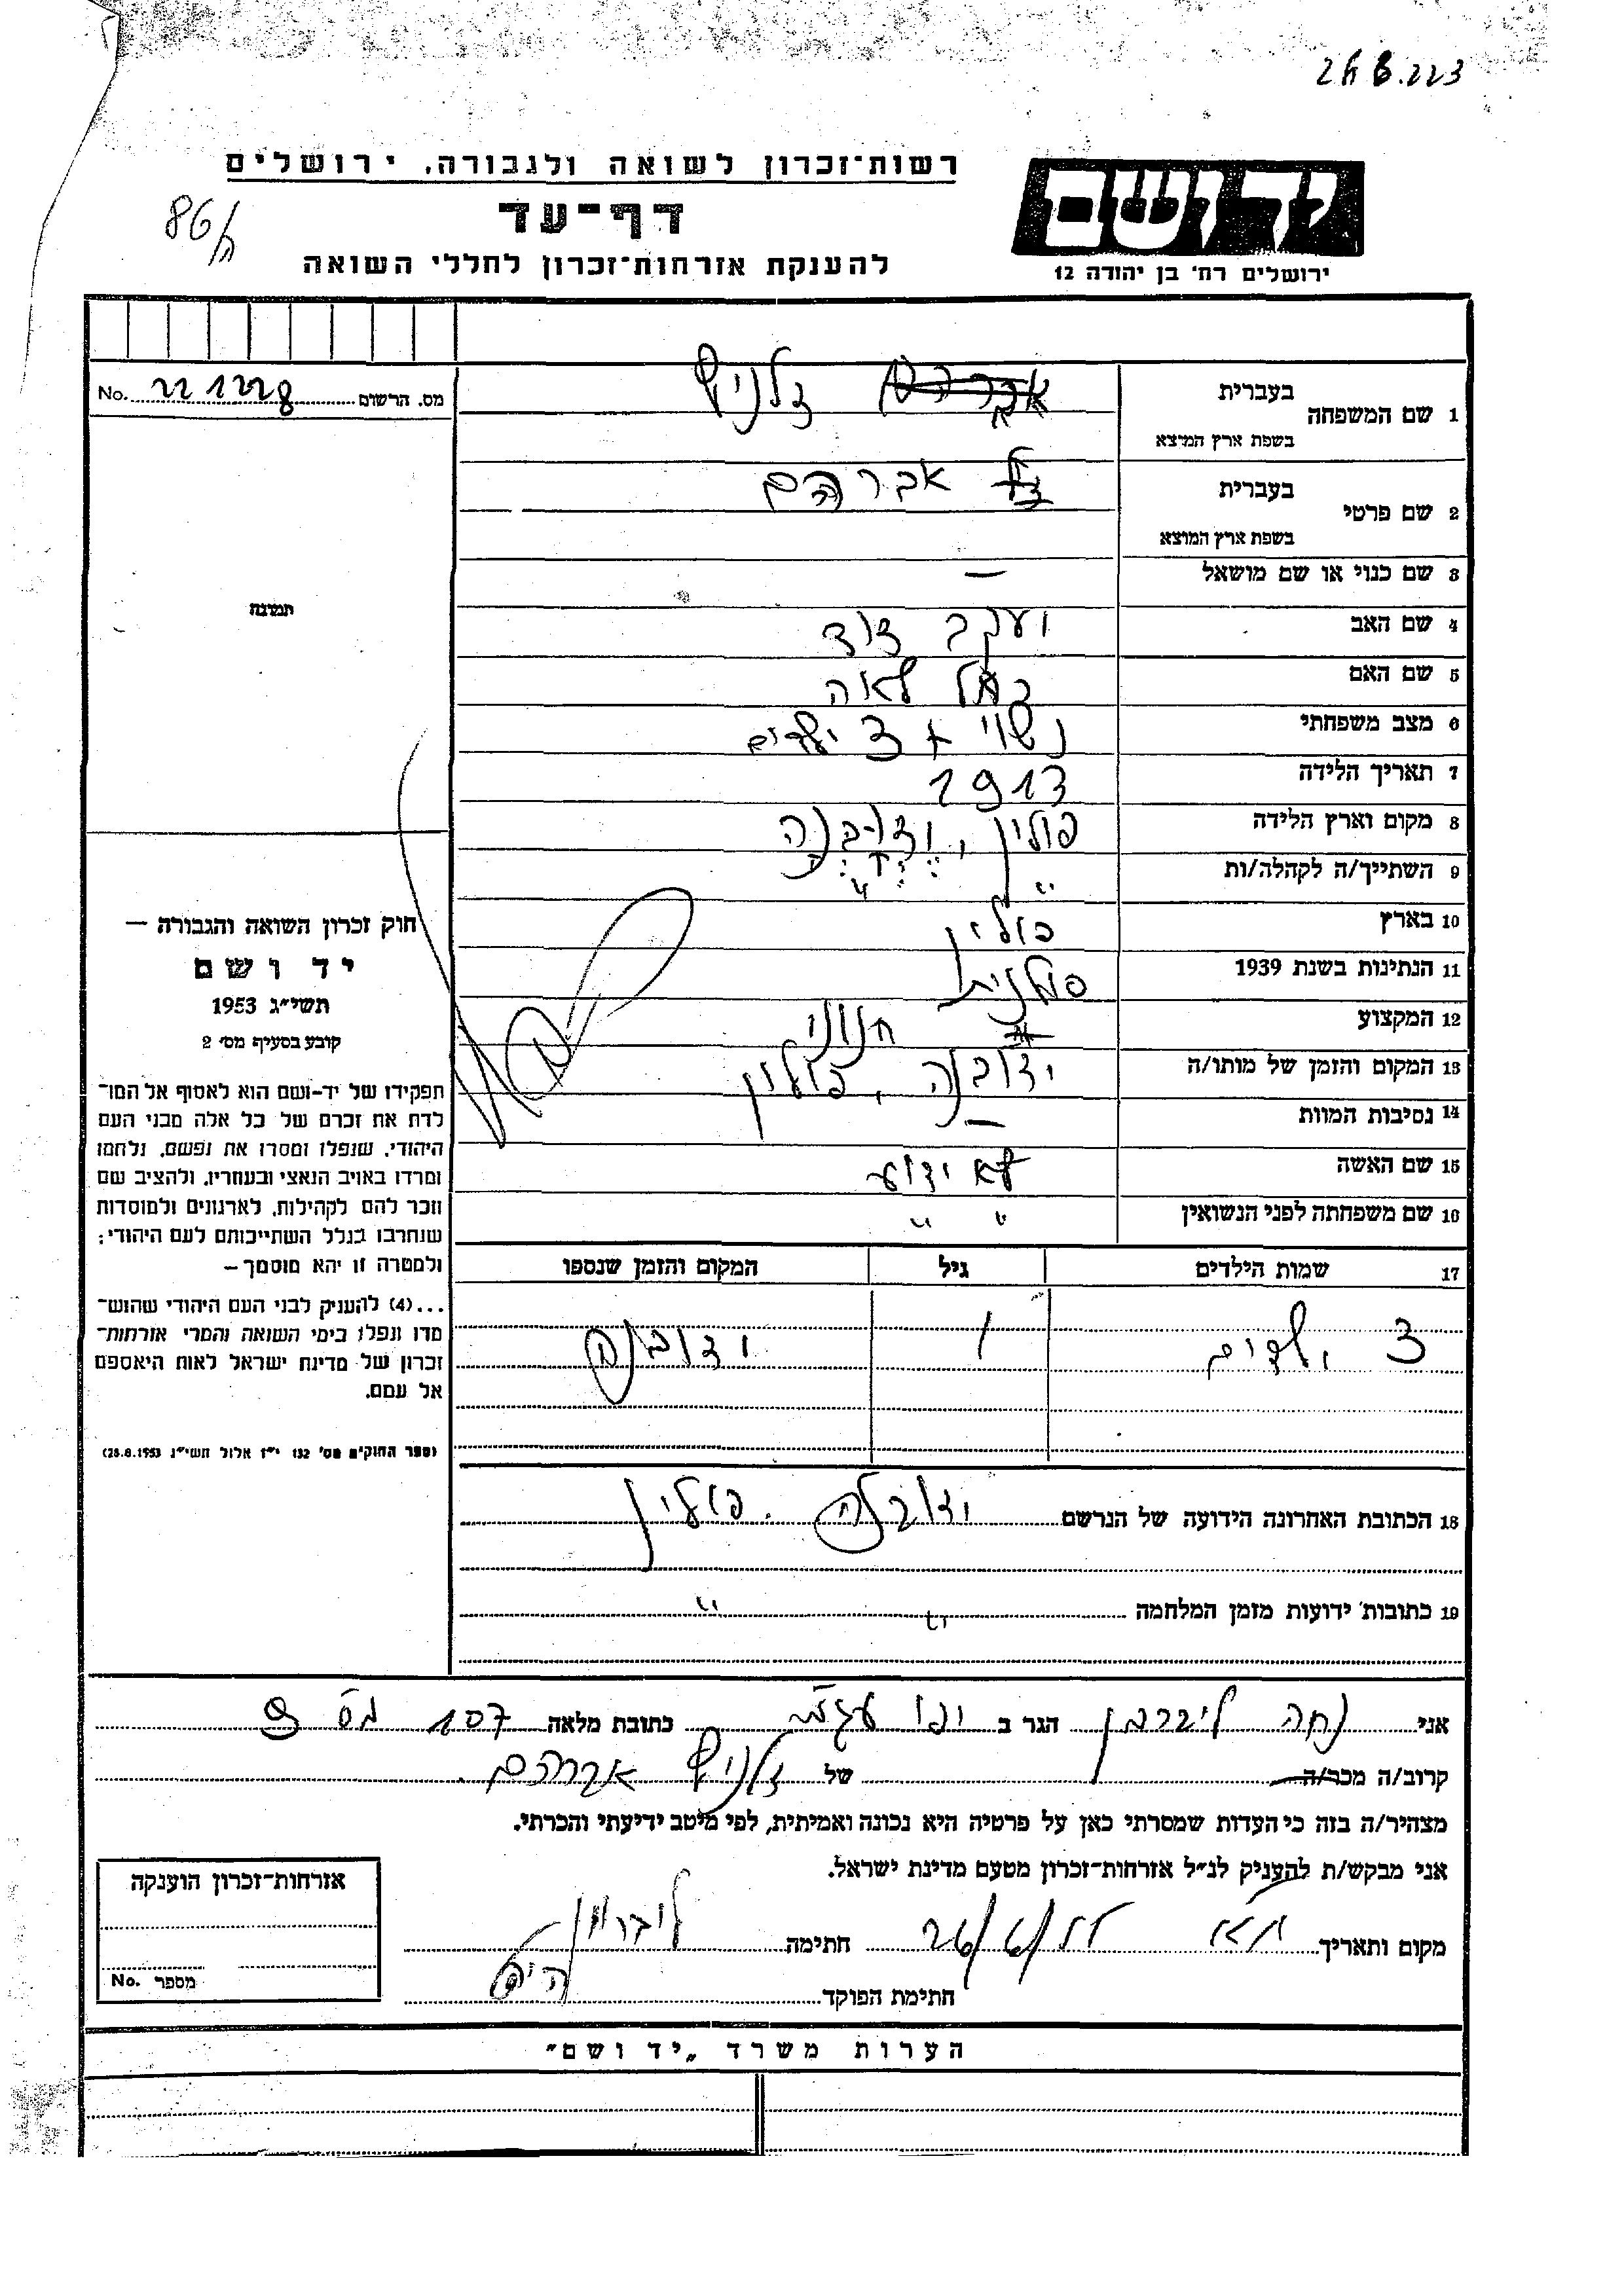 רשות־זכרון לשואה ולגבורה, ירושלים
יד ושם
86/
דף־עד
להענקת אזרחות־זכרון לחללי השואה
ירושלים רח' בן יהודה 12
מס. הרשום 221228 No.
1 שם המשפחה בעברית זלניק
בשפת ארץ המוצא
2 שם פרטי בעברית אברהם
בשפת ארץ המוצא
3 שם כנוי או שם מושאל —
4 שם האב יעקב דוד
5 שם האם רחל לאה
6 מצב משפחתי נשוי + 3 ילדים
7 תאריך הלידה 1913
8 מקום וארץ הלידה פולין, ידובנה
9 השתייך/ה לקהלה/ות " "
10 בארץ פולין
11 הנתינות בשנת 1939 פולנית
12 המקצוע חנוני
13 המקום והזמן של מותו/ה ידובנה, פולין
14 נסיבות המוות —
15 שם האשה לא ידוע
16 שם משפחתה לפני הנשואין " "
17 שמות הילדים גיל המקום והזמן שנספו
3 ילדים / ידובנה
18 הכתובת האחרונה הידועה של הנרשם ידובנה. פולין
19 כתובות ידועות מזמן המלחמה " "
תמונה
חוק זכרון השואה והגבורה —
יד ושם
תשי״ג 1953
קובע בסעיף מס׳ 2
תפקידו של יד-ושם הוא לאסוף אל המו־
לדת את זכרם של כל אלה מבני העם
היהודי, שנפלו ומסרו את נפשם, נלחמו
ומרדו באויב הנאצי ובעוזריו, ולהציב שם
וזכר להם לקהילות, לארגונים ולמוסדות
שנחרבו בגלל השתייכותם לעם היהודי;
ולמטרה זו יהא מוסמך —
...(4) להעניק לבני העם היהודי שהוש־
מדו ונפלו בימי השואה והמרי אזרחות־
זכרון של מדינת ישראל לאות היאספם
אל עמם.
(ספר החוקים מס׳ 132 י״ז אלול תשי״ג 28.8.1953)
אני נחה ליברמן הגר ב יפו כתובת מלאה 107 מס 9
קרוב/ה מכר/ה של זלניק אברהם
מצהיר/ה בזה כי העדות שמסרתי כאן על פרטיה היא נכונה ואמיתית, לפי מיטב ידיעתי והכרתי.
אני מבקש/ת להעניק לנ״ל אזרחות־זכרון מטעם מדינת ישראל.
מקום ותאריך ת״א חתימה ליברמן
חתימת הפוקד
אזרחות־זכרון הוענקה
מספר No.
הערות משרד „יד ושם״